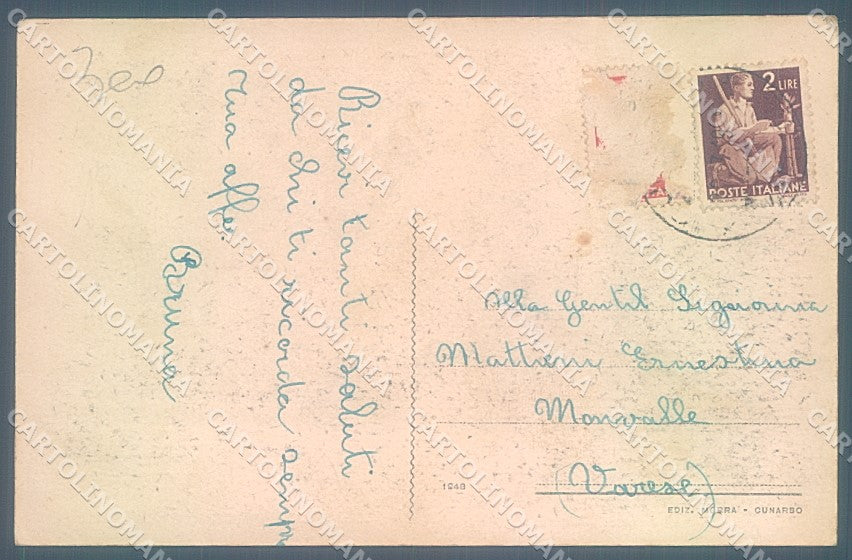 Ricevi tanti saluti
da chi ti ricorda sempre
tua affe.
Bruna
2 LIRE
POSTE ITALIANE
Alla Gentil Signorina
Mattieni Ernestina
Monvalle
(Varese)
1948
EDIZ. MORRA - CUNARDO
CARTOLINOMANIA